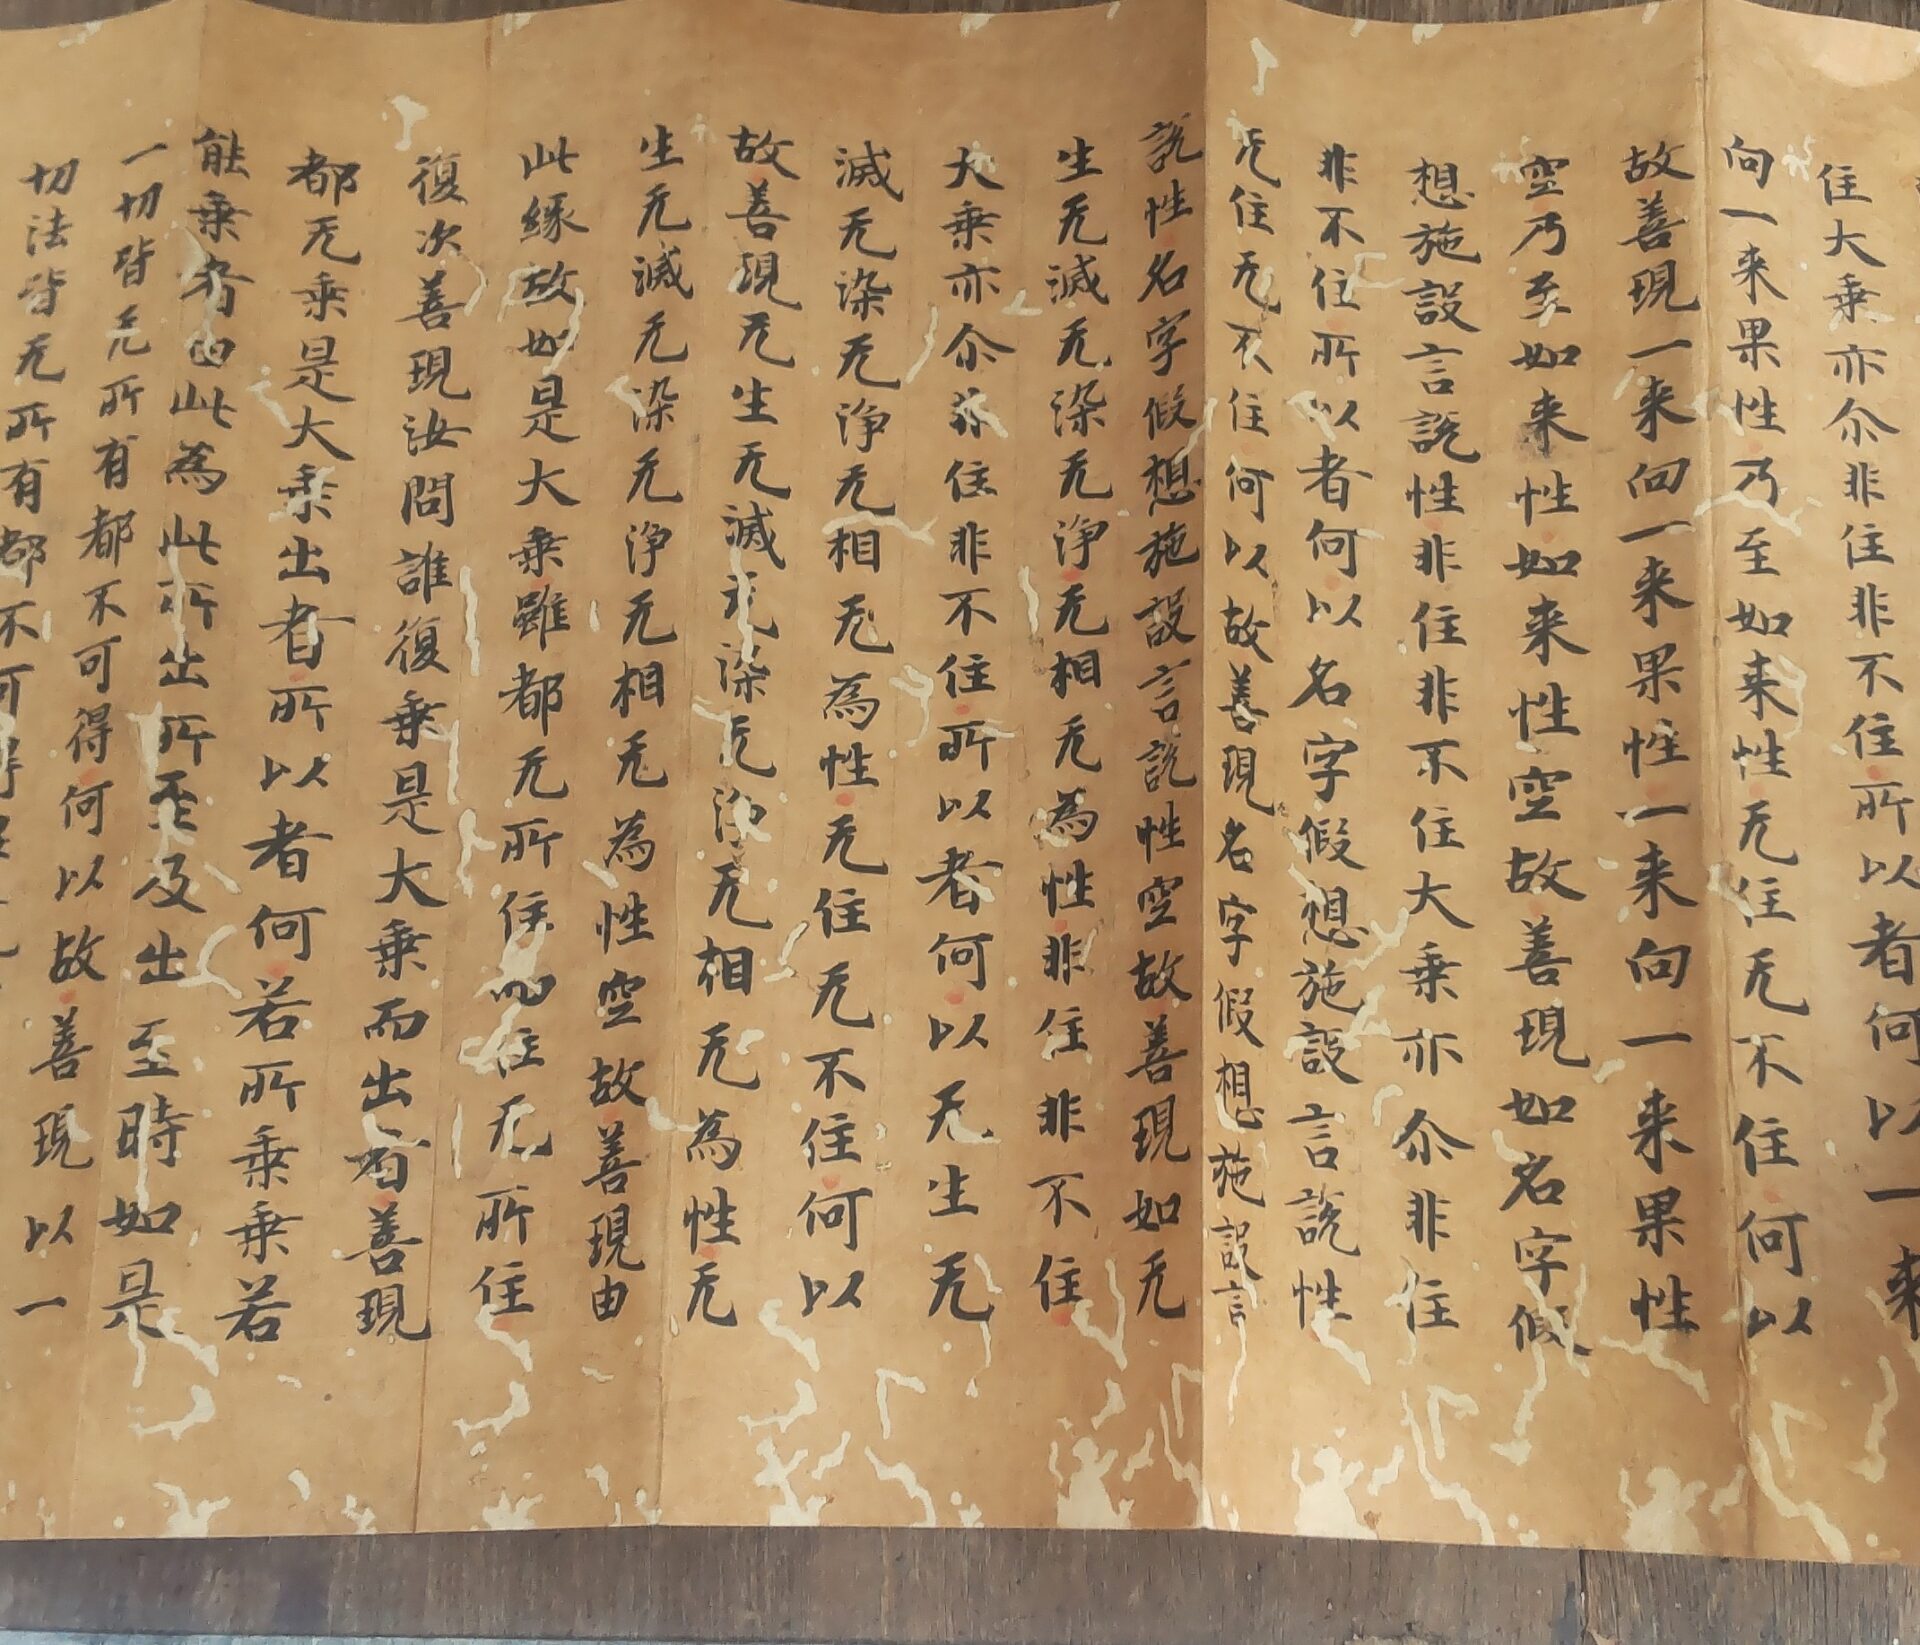 住大乗亦尒非住非不住所以者何以一来
向一来果性乃至如来性无住无不住何以
故善現一来向一来果性一来向一来果性
空乃至如来性如来性空故善現如名字假
想施設言説性非住非不住大乗亦尒非住
非不住所以者何以名字假想施設言説性
无住无不住何以故善現名字假想施設言
説性名字假想施設言説性空故善現如无
生无滅无染无浄无相无為性非住非不住
大乗亦尒非住非不住所以者何以无生无
滅无染无浄无相无為性无住无不住何以
故善現无生无滅无染无浄无相无為性无
生无滅无染无浄无相无為性空故善現由
此縁故如是大乗雖都无所住而住无所住
復次善現汝問誰復乗是大乗而出者善現
都无乗是大乗出者所以者何若所乗乗若
能乗者由此為此所出所至及出至時如是
一切皆无所有都不可得何以故善現以一
切法皆无所有都不可得